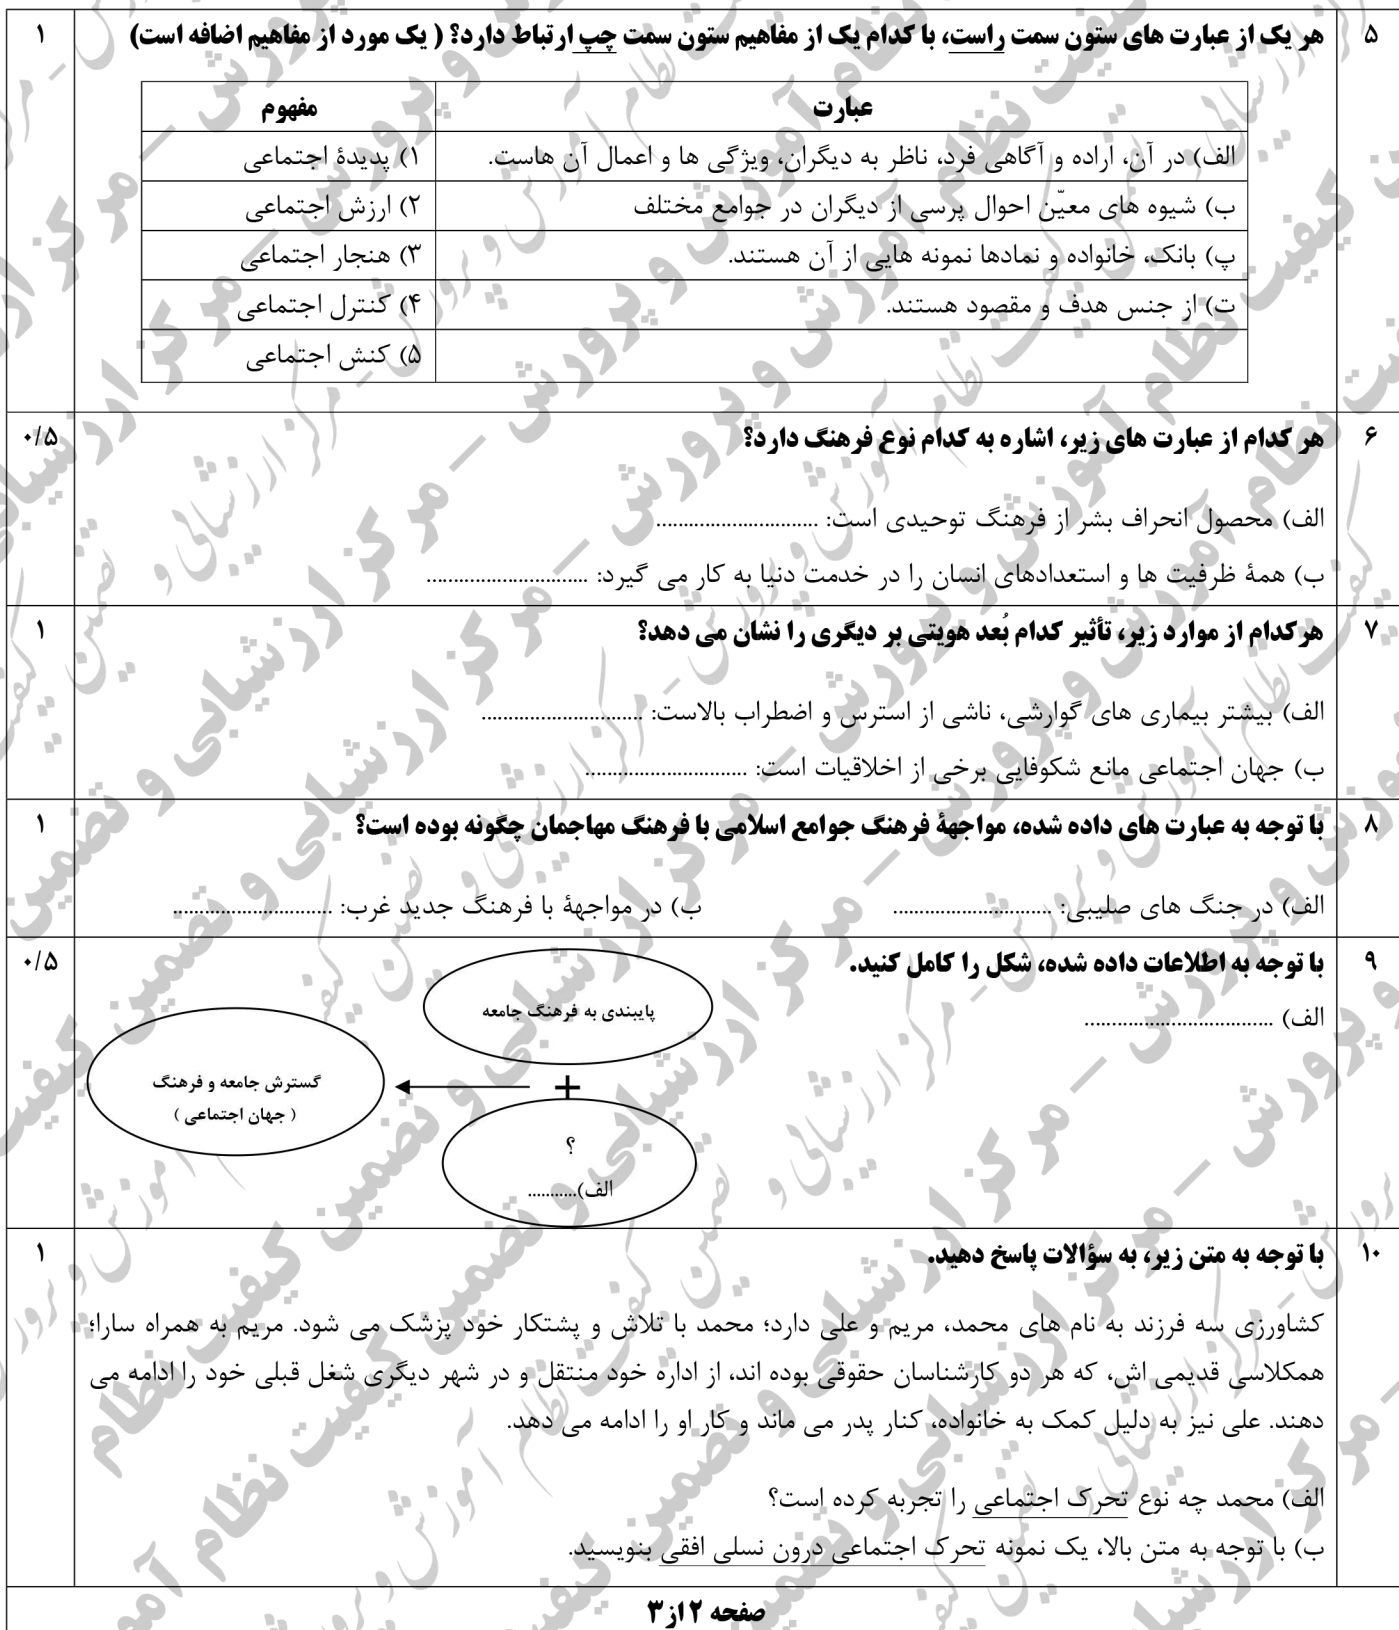 ۵ هر یک از عبارت های ستون سمت راست، با کدام یک از مفاهیم ستون سمت چپ ارتباط دارد؟ ( یک مورد از مفاهیم اضافه است) ۱
عبارت مفهوم
الف) در آن، اراده و آگاهی فرد، ناظر به دیگران، ویژگی ها و اعمال آن هاست. ۱) پدیدۀ اجتماعی
ب) شیوه های معیّن احوال پرسی از دیگران در جوامع مختلف ۲) ارزش اجتماعی
پ) بانک، خانواده و نمادها نمونه هایی از آن هستند. ۳) هنجار اجتماعی
ت) از جنس هدف و مقصود هستند. ۴) کنترل اجتماعی
۵) کنش اجتماعی
۶ هر کدام از عبارت های زیر، اشاره به کدام نوع فرهنگ دارد؟ ۰/۵
الف) محصول انحراف بشر از فرهنگ توحیدی است: ..............................
ب) همۀ ظرفیت ها و استعدادهای انسان را در خدمت دنیا به کار می گیرد: ..............................
۷ هرکدام از موارد زیر، تأثیر کدام بُعد هویتی بر دیگری را نشان می دهد؟ ۱
الف) بیشتر بیماری های گوارشی، ناشی از استرس و اضطراب بالاست: ..............................
ب) جهان اجتماعی مانع شکوفایی برخی از اخلاقیات است: ..............................
۸ با توجه به عبارت های داده شده، مواجهۀ فرهنگ جوامع اسلامی با فرهنگ مهاجمان چگونه بوده است؟ ۱
الف) در جنگ های صلیبی: .............................. ب) در مواجهۀ با فرهنگ جدید غرب: ..............................
۹ با توجه به اطلاعات داده شده، شکل را کامل کنید. ۰/۵
الف) ...................................
پایبندی به فرهنگ جامعه
+
؟
الف)...........
گسترش جامعه و فرهنگ
( جهان اجتماعی )
۱۰ با توجه به متن زیر، به سؤالات پاسخ دهید. ۱
کشاورزی سه فرزند به نام های محمد، مریم و علی دارد؛ محمد با تلاش و پشتکار خود پزشک می شود. مریم به همراه سارا؛
همکلاسی قدیمی اش، که هر دو کارشناسان حقوقی بوده اند، از اداره خود منتقل و در شهر دیگری شغل قبلی خود را ادامه می
دهند. علی نیز به دلیل کمک به خانواده، کنار پدر می ماند و کار او را ادامه می دهد.
الف) محمد چه نوع تحرک اجتماعی را تجربه کرده است؟
ب) با توجه به متن بالا، یک نمونه تحرک اجتماعی درون نسلی افقی بنویسید.
صفحه ۲ از ۳
مرکز ارزشیابی و تضمین کیفیت نظام آموزش و پرورش